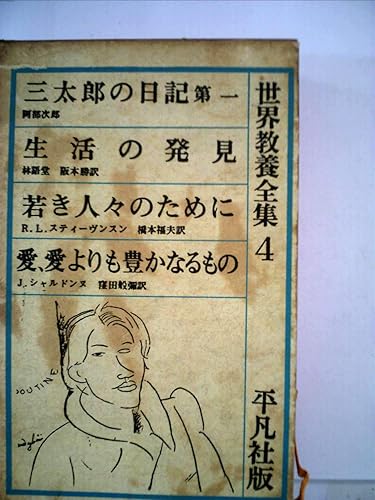 三太郎の日記 第一
阿部次郎
生活の発見
林語堂 阪本勝訳
若き人々のために
R.L.スティーヴンスン 橋本福夫訳
愛、愛よりも豊かなるもの
J.シャルドンヌ 窪田般彌訳
世界教養全集 4
平凡社版
OUTINE